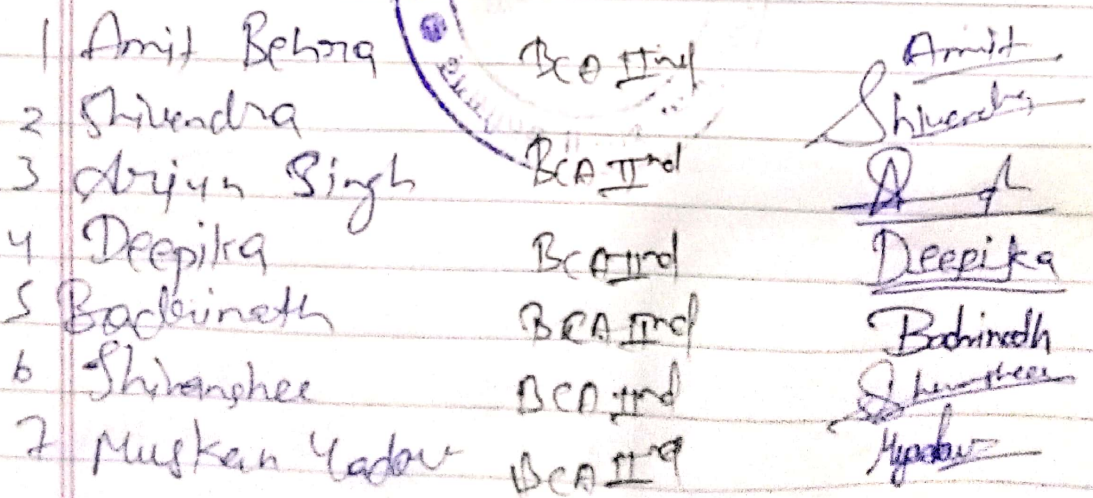 1 Amit Behra BCA IInd Amit
2 Shivendra Shivendra
3 Arjun Singh BCA IInd
4 Deepika BCA IInd Deepika
5 Badrinath BCA IInd Badrinath
6 Shivanshee BCA IInd Shivanshee
7 Muskan Yadav BCA IInd Myadav